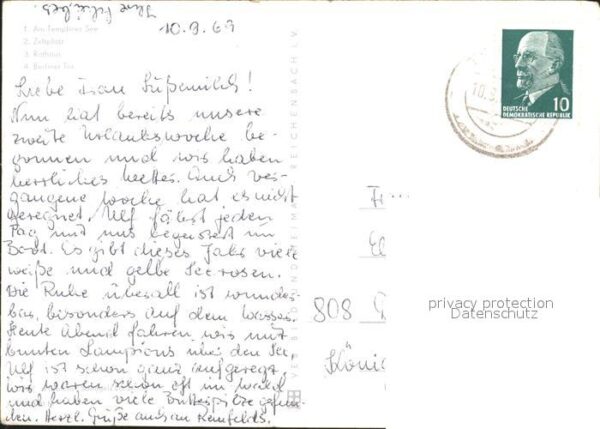 Ihre
10.9.69
1. Am Templiner See
2. Zeltplatz
3. Rathaus
4. Berliner Tor
Liebe Frau Süßmilch!
Nun hat bereits unsere
zweite Urlaubswoche be-
gonnen und wir haben
herrliches Wetter. Auch ver-
gangene Woche hat es nicht
geregnet. Ulf fährt jeden
Tag mit uns begeistert im
Boot. Es gibt dieses Jahr viele
weiße und gelbe Seerosen.
Die Ruhe überall ist wunder-
bar, besonders auf dem Wasser.
Heute Abend fahren wir mit
bunten Lampions über den See,
Ulf ist schon ganz aufgeregt,
wir waren schon oft im Wald
und haben viele Butterpilze gefun-
den. Herzl. Grüße auch an
REICHENBACH I.V.
DEUTSCHE
DEMOKRATISCHE REPUBLIK
10
10.9.
808
Köni
privacy protection
Datenschutz